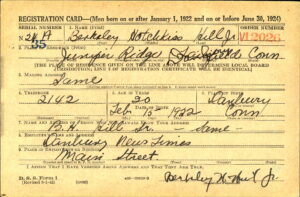 REGISTRATION CARD—(Men born on or after January 1, 1922 and on or before June 30, 1924)
SERIAL NUMBER 1. NAME (Print) ORDER NUMBER
N Berkeley Hotchkiss Hill Jr.
2. PLACE OF RESIDENCE (Print)
Juniper Ridge Fairfield Conn.
(THE PLACE OF RESIDENCE GIVEN ON THE LINE ABOVE WILL DETERMINE LOCAL BOARD
JURISDICTION; LINE 2 OF REGISTRATION CERTIFICATE WILL BE IDENTICAL)
3. MAILING ADDRESS
Same
4. TELEPHONE 5. AGE IN YEARS 6. PLACE OF BIRTH
2142 20 Danbury
DATE OF BIRTH
Feb 15 1922 Conn
7. NAME AND ADDRESS OF PERSON WHO WILL ALWAYS KNOW YOUR ADDRESS
B.H. Hill Sr. – Same –
8. EMPLOYER'S NAME AND ADDRESS
Danbury News Times
9. PLACE OF EMPLOYMENT OR BUSINESS
Main Street
I AFFIRM THAT I HAVE VERIFIED ABOVE ANSWERS AND THAT THEY ARE TRUE.
D. S. S. Form 1
Berkeley H. Hill Jr.